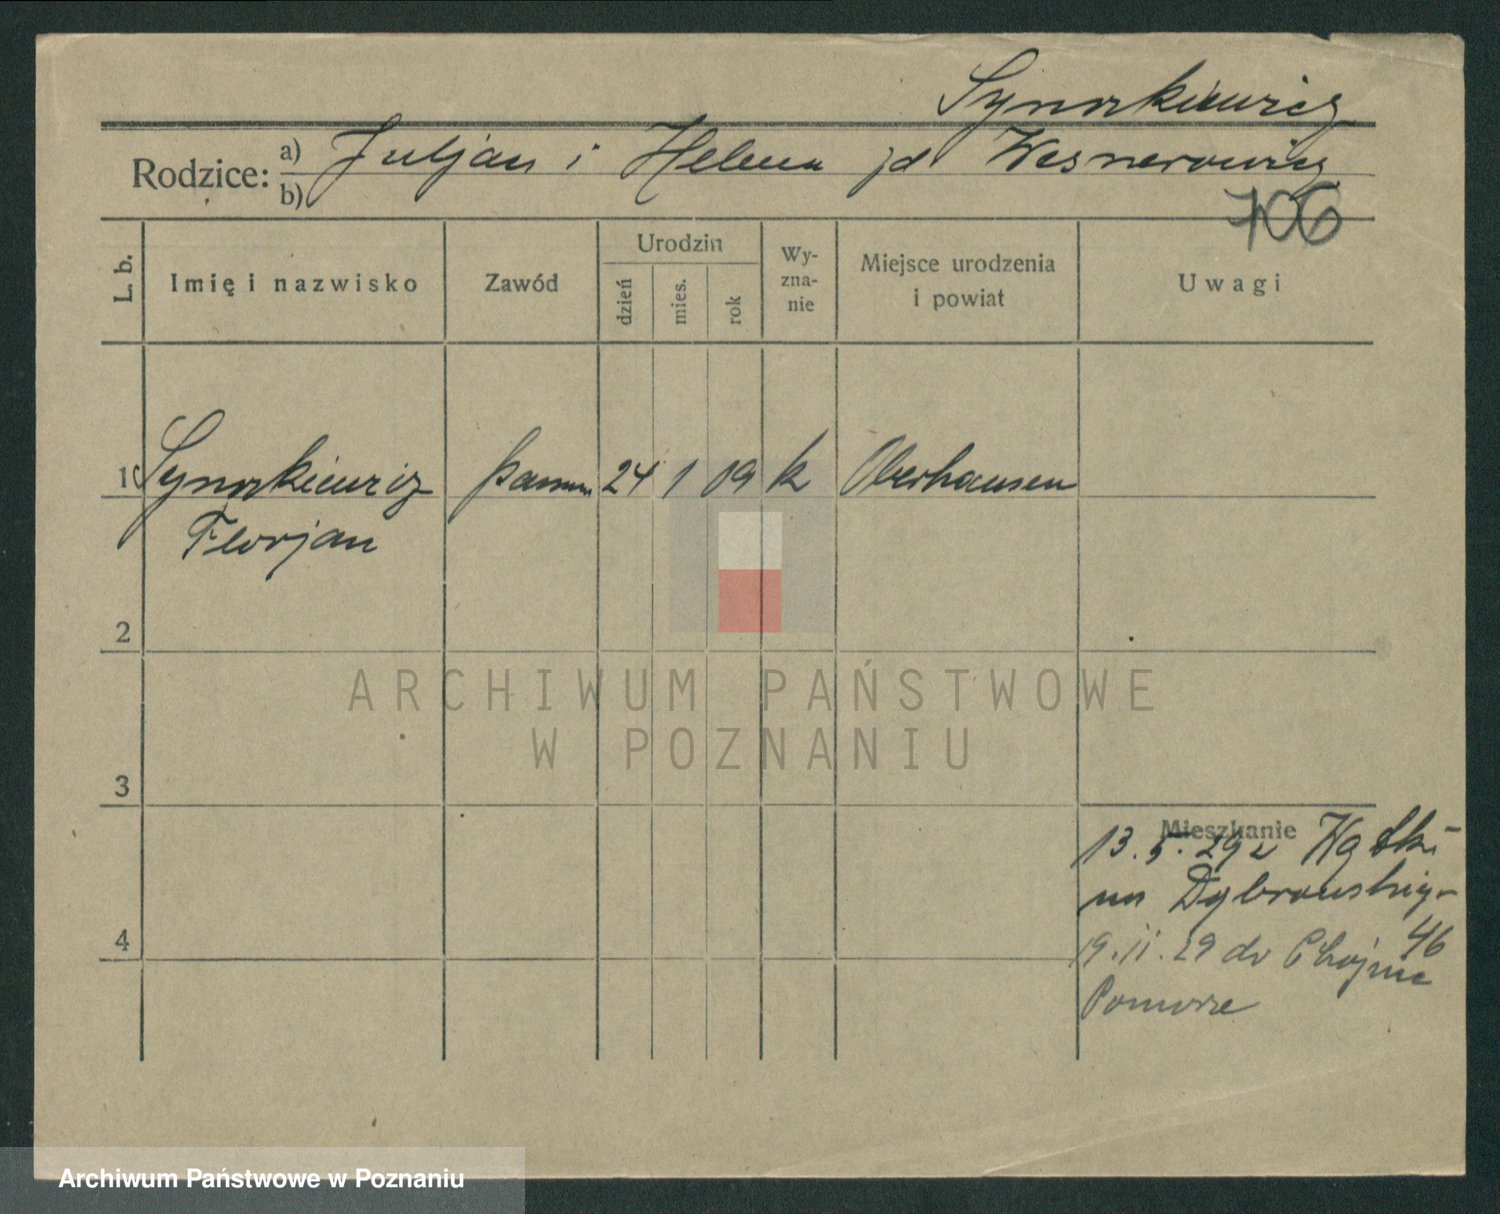 Synorkiewicz
Rodzice: a) Juljan i Helena zd Wesnerowicz
b)
706
L. b. Imię i nazwisko Zawód Urodzin dzień mies. rok Wy-zna-nie Miejsce urodzenia i powiat Uwagi
1 Synorkiewicz 24 1 09 k Oberhausen
Florjan
2
3
Mieszkanie
13.5.29 z
na Dąbrowskieg-
46
19.11.29 do Chojnic
Pomorze
4
ARCHIWUM PAŃSTWOWE
W POZNANIU
Archiwum Państwowe w Poznaniu